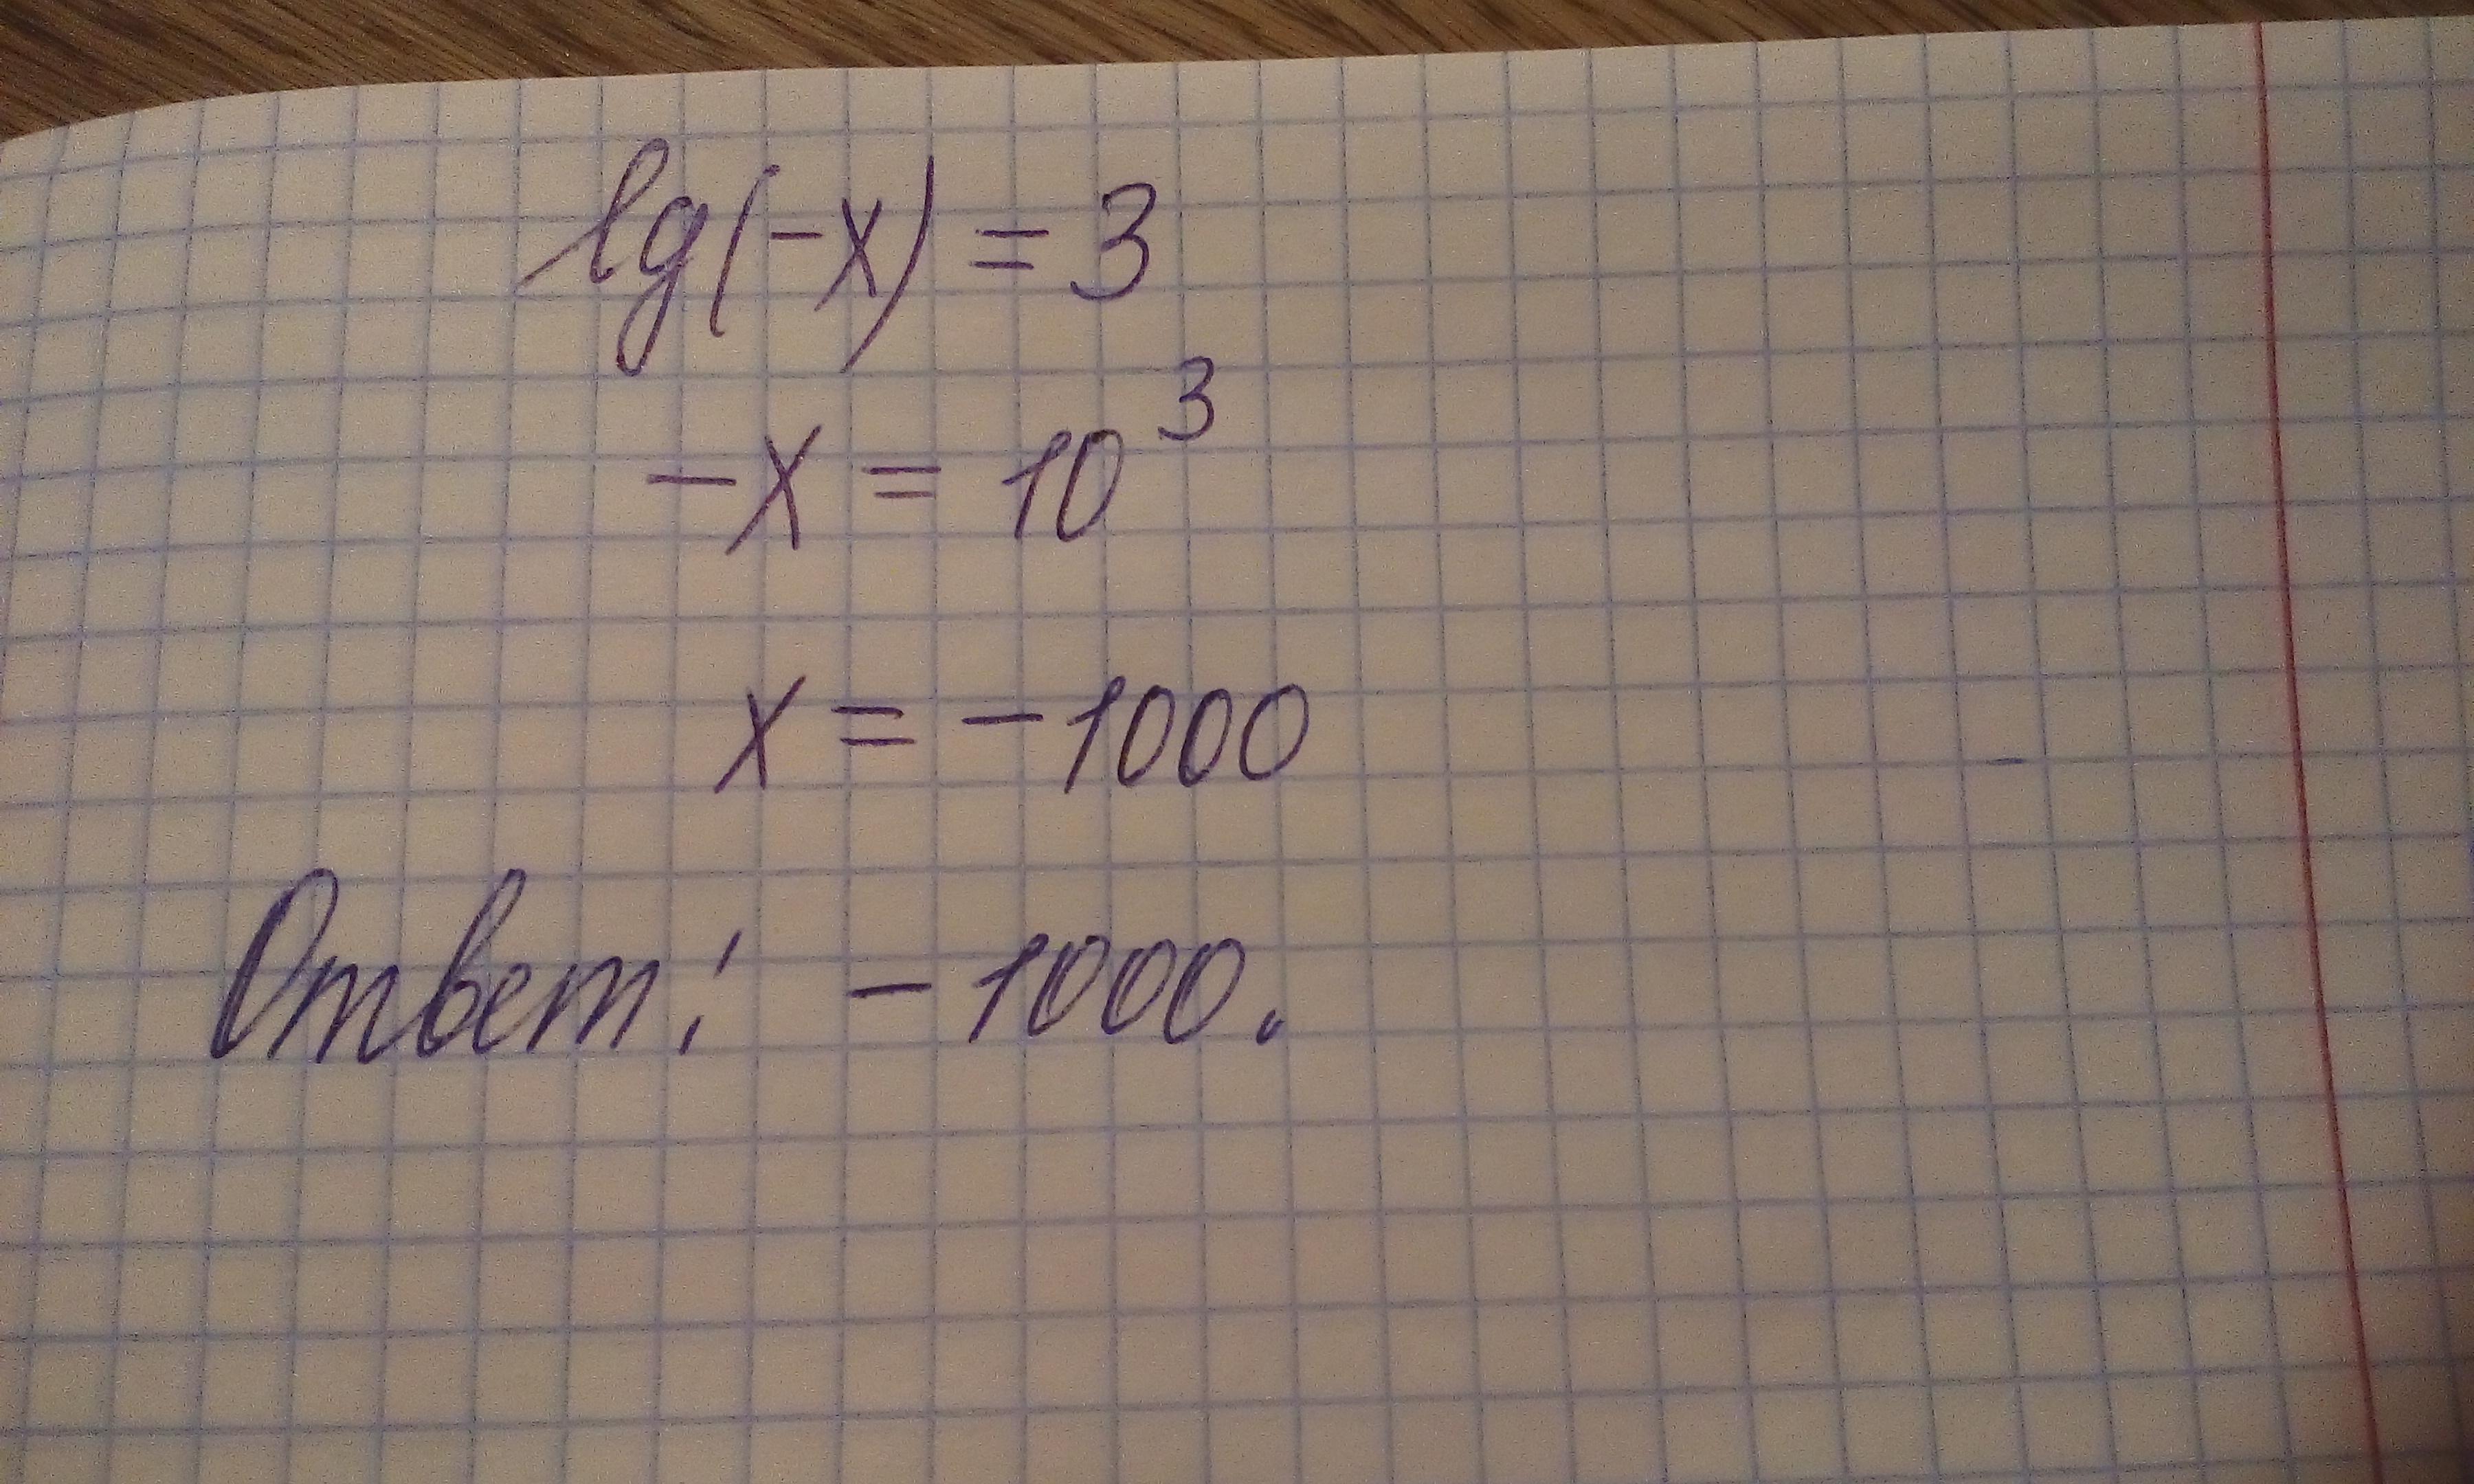 lg(-x) = 3
-x = 10³
x = -1000
Ответ: -1000.